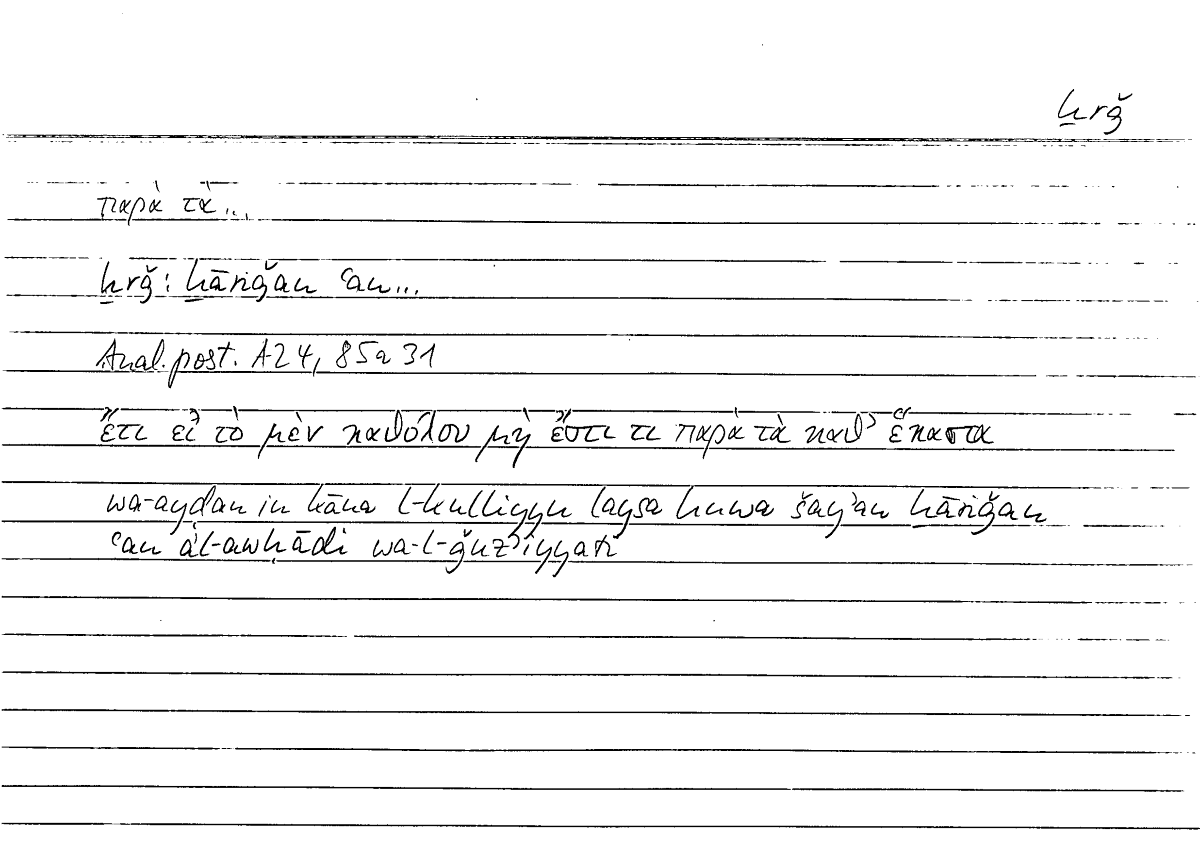 ḫrǧ
παρὰ τὰ...
ḫrǧ: ḫāriǧan ʿan...
Anal. post. A24, 85a 31
ἔτι εἰ τὸ μὲν καθόλου μὴ ἔστι τι παρὰ τὰ καθ’ ἕκαστα
wa-ayḍan in kāna l-kulliyyu laysa huwa šayʾan ḫāriǧan
ʿan al-awḥādi wa-l-ǧuzʾiyyati